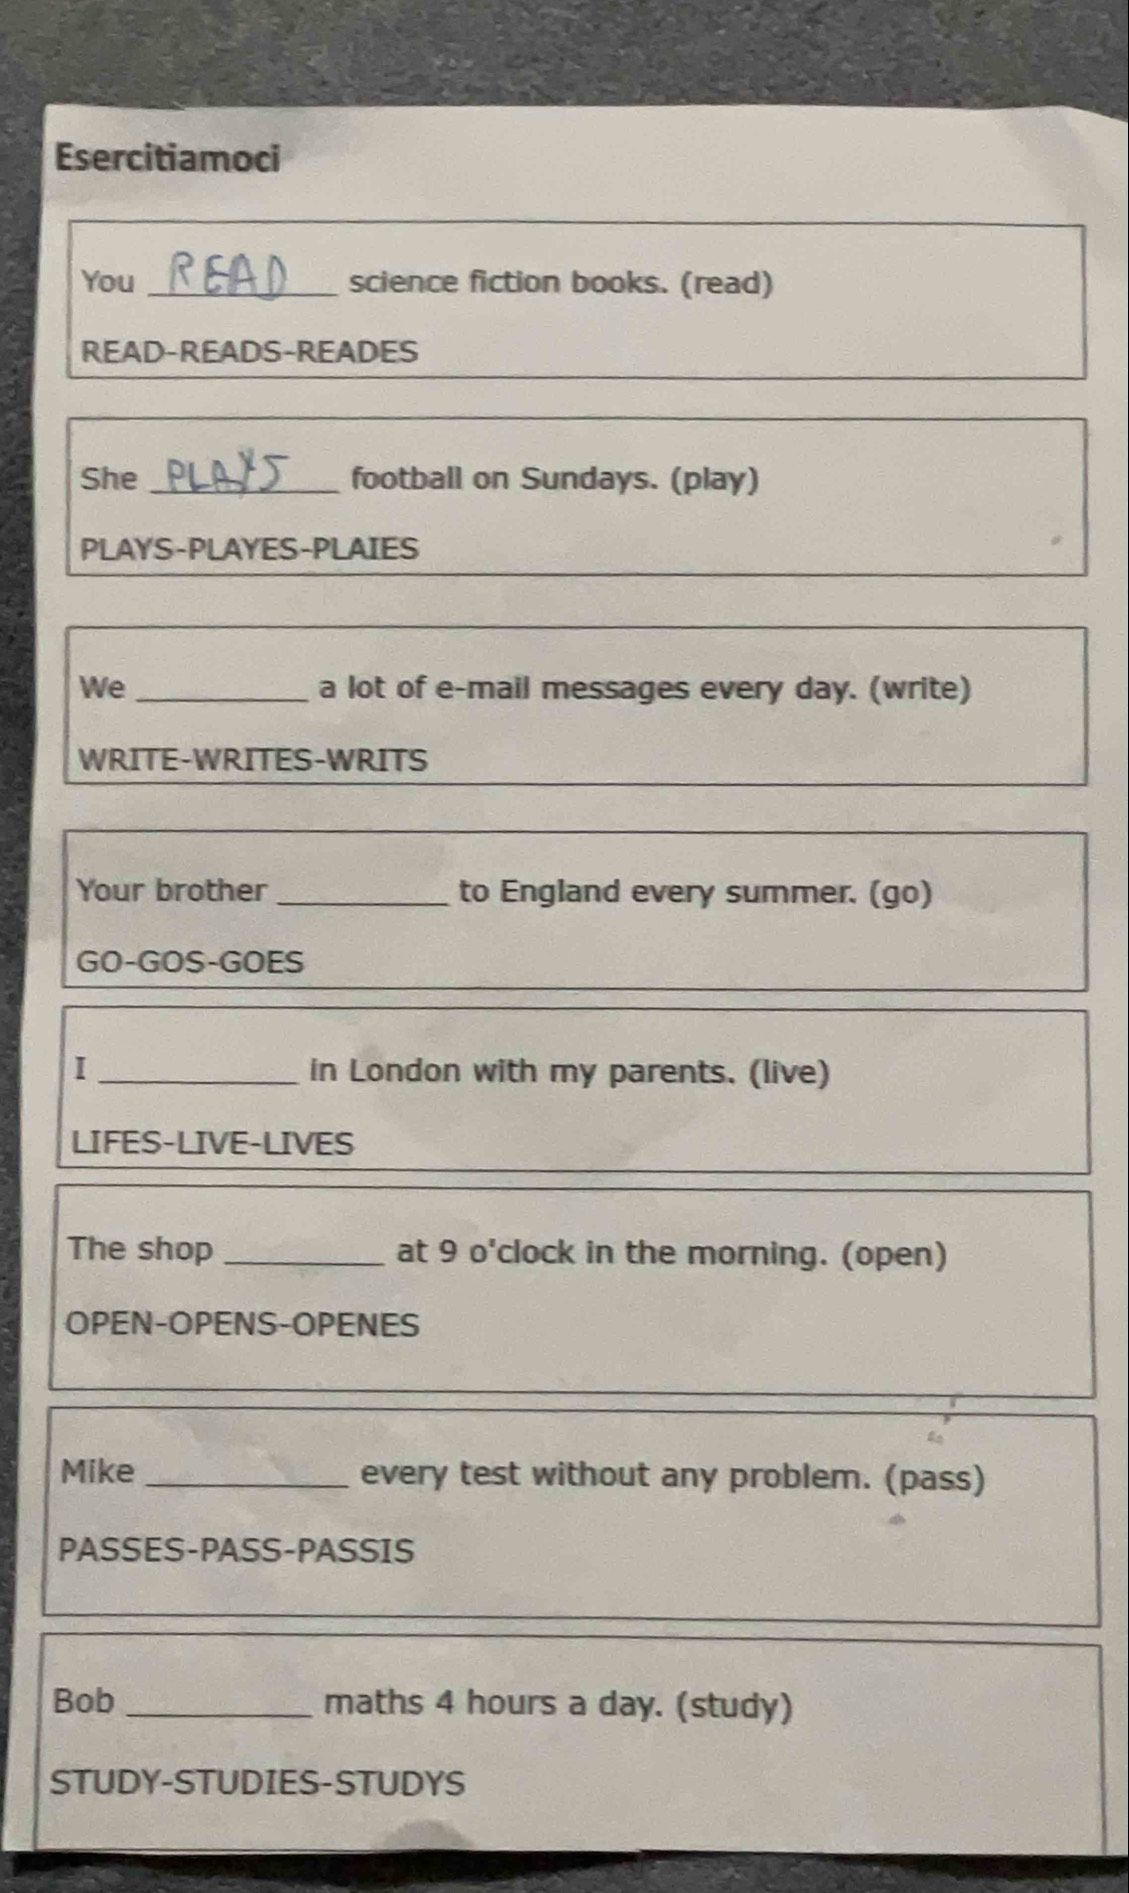 Esercitiamoci
You READ science fiction books. (read)
READ-READS-READES
She PLAYS football on Sundays. (play)
PLAYS-PLAYES-PLAIES
We __________ a lot of e-mail messages every day. (write)
WRITE-WRITES-WRITS
Your brother __________ to England every summer. (go)
GO-GOS-GOES
I ____________ in London with my parents. (live)
LIFES-LIVE-LIVES
The shop _________ at 9 o'clock in the morning. (open)
OPEN-OPENS-OPENES
Mike ____________ every test without any problem. (pass)
PASSES-PASS-PASSIS
Bob __________ maths 4 hours a day. (study)
STUDY-STUDIES-STUDYS